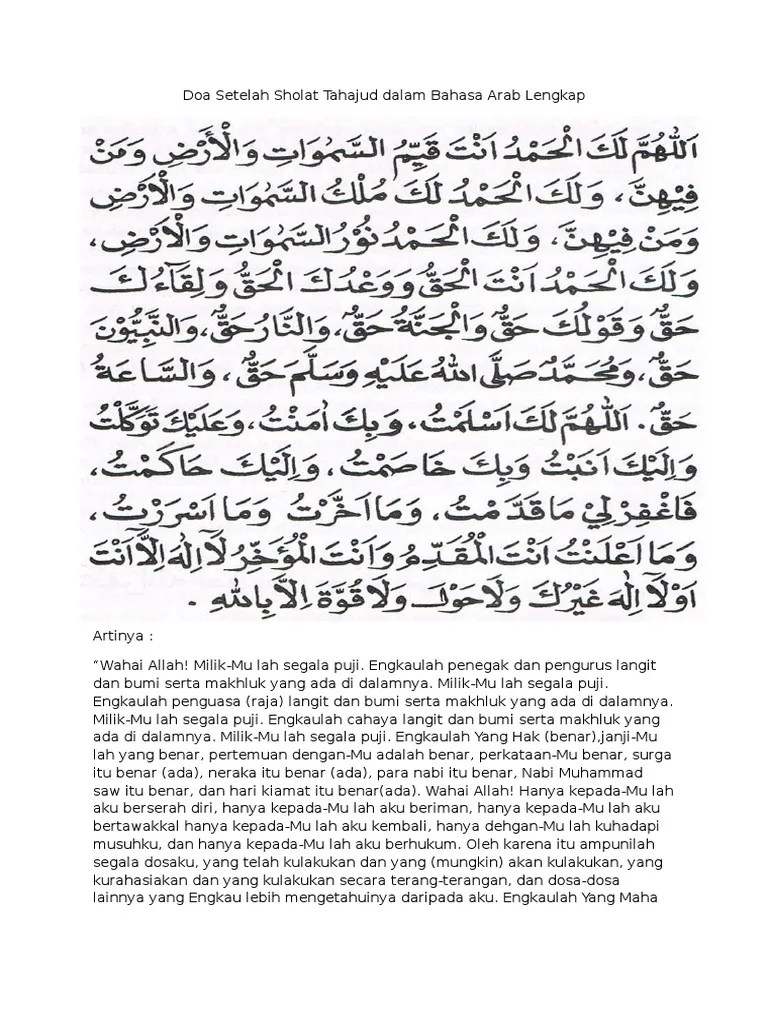 Doa Setelah Sholat Tahajud dalam Bahasa Arab Lengkap
اَللّٰهُمَّ لَكَ الْحَمْدُ اَنْتَ قَيِّمُ السَّمٰوَاتِ وَالْأَرْضِ وَمَنْ
فِيْهِنَّ، وَلَكَ الْحَمْدُ لَكَ مُلْكُ السَّمٰوَاتِ وَالْاَرْضِ
وَمَنْ فِيْهِنَّ، وَلَكَ الْحَمْدُ نُوْرُ السَّمٰوَاتِ وَالْاَرْضِ،
وَلَكَ الْحَمْدُ اَنْتَ الْحَقُّ وَوَعْدُكَ الْحَقُّ وَلِقَآءُكَ
حَقٌّ وَقَوْلُكَ حَقٌّ وَالْجَنَّةُ حَقٌّ، وَالنَّارُ حَقٌّ، وَالنَّبِيُّوْنَ
حَقٌّ، وَمُحَمَّدٌ صَلَّى اللهُ عَلَيْهِ وَسَلَّمَ حَقٌّ، وَالسَّاعَةُ
حَقٌّ. اَللّٰهُمَّ لَكَ اَسْلَمْتُ، وَبِكَ اٰمَنْتُ، وَعَلَيْكَ تَوَكَّلْتُ
وَاِلَيْكَ اَنَبْتُ وَبِكَ خَاصَمْتُ، وَاِلَيْكَ حَاكَمْتُ،
فَاغْفِرْ لِيْ مَا قَدَّمْتُ، وَمَا اَخَّرْتُ وَمَا اَسْرَرْتُ،
وَمَا اَعْلَنْتُ اَنْتَ الْمُقَدِّمُ وَاَنْتَ الْمُؤَخِّرُ لَآ اِلٰهَ اِلَّآ اَنْتَ
اَوْلَآ اِلٰهَ غَيْرُكَ وَلَا حَوْلَ وَلَا قُوَّةَ اِلَّا بِاللهِ.
Artinya :
“Wahai Allah! Milik-Mu lah segala puji. Engkaulah penegak dan pengurus langit
dan bumi serta makhluk yang ada di dalamnya. Milik-Mu lah segala puji.
Engkaulah penguasa (raja) langit dan bumi serta makhluk yang ada di dalamnya.
Milik-Mu lah segala puji. Engkaulah cahaya langit dan bumi serta makhluk yang
ada di dalamnya. Milik-Mu lah segala puji. Engkaulah Yang Hak (benar),janji-Mu
lah yang benar, pertemuan dengan-Mu adalah benar, perkataan-Mu benar, surga
itu benar (ada), neraka itu benar (ada), para nabi itu benar, Nabi Muhammad
saw itu benar, dan hari kiamat itu benar(ada). Wahai Allah! Hanya kepada-Mu lah
aku berserah diri, hanya kepada-Mu lah aku beriman, hanya kepada-Mu lah aku
bertawakkal hanya kepada-Mu lah aku kembali, hanya dehgan-Mu lah kuhadapi
musuhku, dan hanya kepada-Mu lah aku berhukum. Oleh karena itu ampunilah
segala dosaku, yang telah kulakukan dan yang (mungkin) akan kulakukan, yang
kurahasiakan dan yang kulakukan secara terang-terangan, dan dosa-dosa
lainnya yang Engkau lebih mengetahuinya daripada aku. Engkaulah Yang Maha